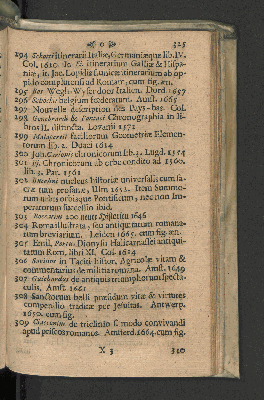 0 325
294 Schotti Itinerarii Italiæ, Germaniæque lib. IV.
Col. 1620. It. Itinerarium Galliæ & Hispa-
niæ, it. Jac. Lopidis Itinerarium ab op-
pido complutensi ad Romam, cum fig.
295 Wegh-Wyser door Italien. Dord. 1657
296 belgium fœderatum. Amst. 1665
297 Nouvelle description des Pays-bas. Col.
298 Genebrardi & Pontaci Chronographia in li-
bros II. distincta. Lovanii 1572
299 Malapertii facilorum Geometriæ Elemen-
torum lib. 2. Duaci 1624
300 Joh. Carionis chronicorum lib. 3. Lugd. 1554
301 Ej. Chronicorum ab orbe condito ad 1560.
lib. 3. Par. 1561
302 Bucelini nucleus historiæ universalis cum sa-
cræ tum profanæ, Ulm 1652. Item Summo-
rum urbis orbisque Pontificum, nec non Im-
peratorum successio ibid.
303 200 neuer Episteln 1646
304 Roma illustrata, seu antiquitatum romana-
rum breviarium. Leiden 1665. cum fig. æn.
305 Emil. Porti Dionysii Halicarnassei antiqui-
tatum Rom. libri XI. Col. 1614
306 Savilius in Taciti histor. Agricolæ vitam &
commentarius de militia romana. Amst. 1649
307 de antiquis triumphorum specta-
culis, Amst. 1661
308 Sanctorum belli præsidum vitæ & virtutes
compendio traditæ per Jesuitas. Antwerp.
1650. cum fig.
309 Ciacconius de triclinio s. modo convivandi
apud priscos romanos. Amsterd. 1664. cum fig.
X 3 310